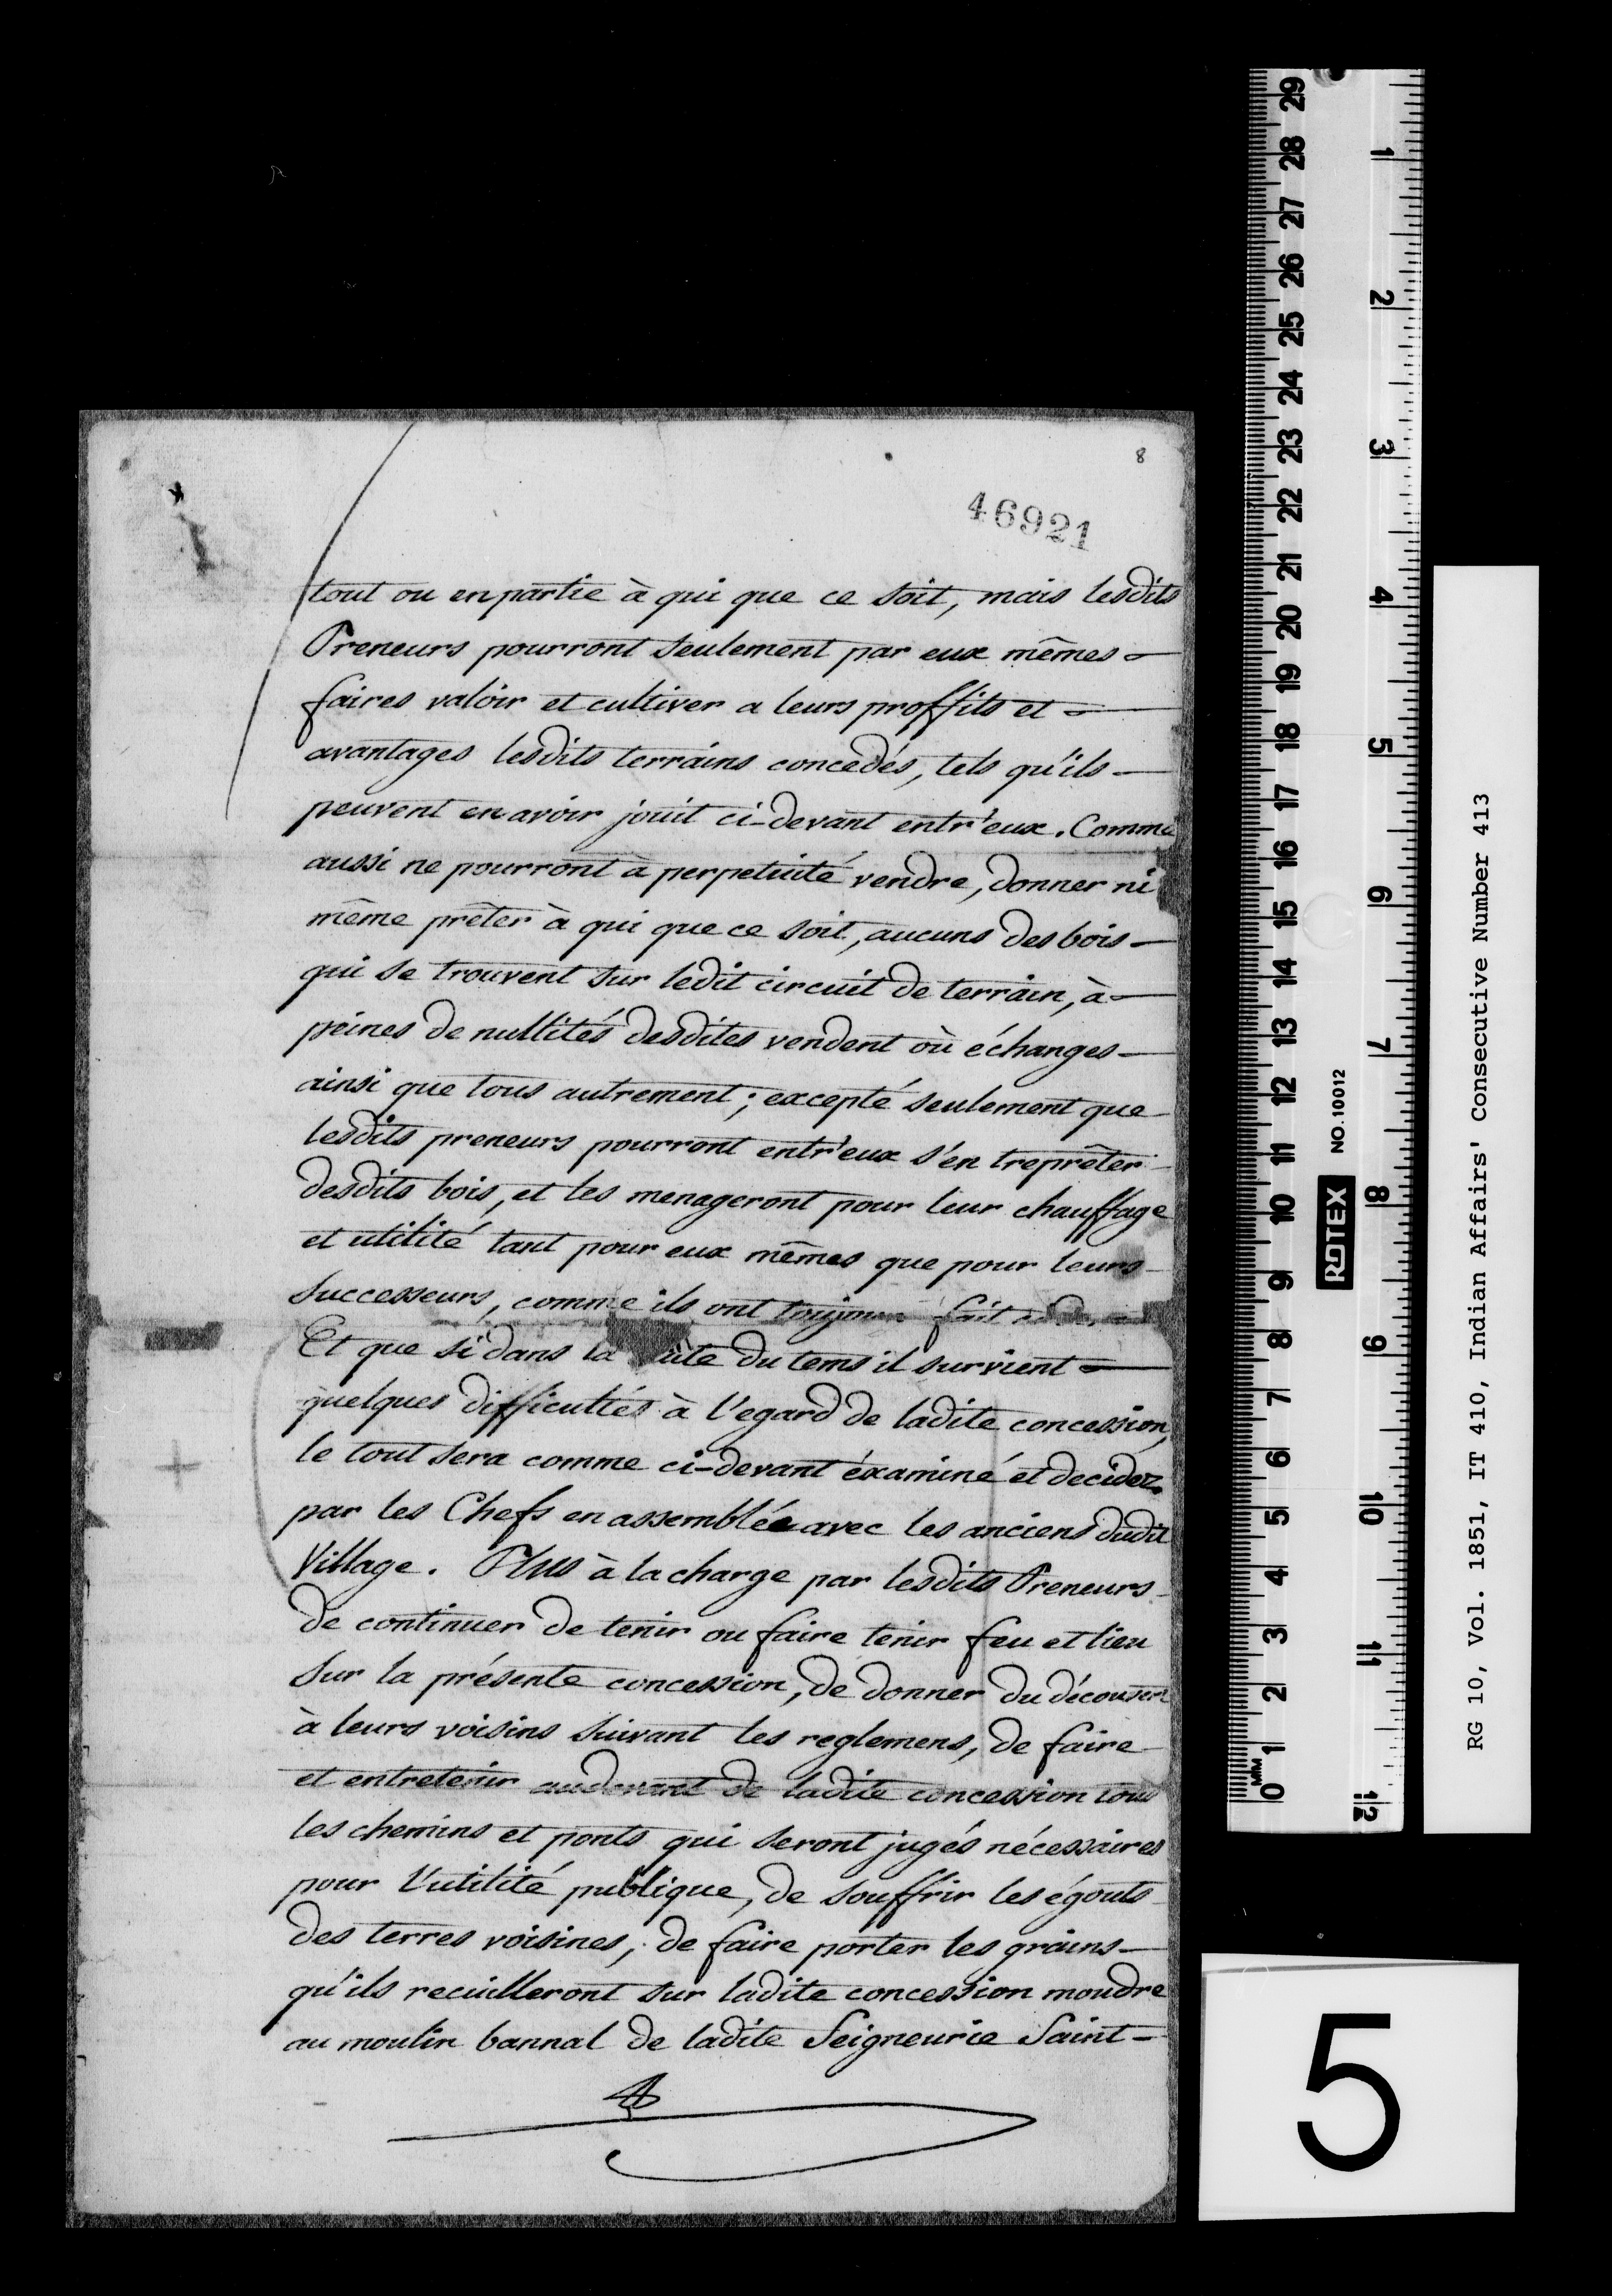 8
46921
tout ou en partie à qui que ce soit, mais lesdits
Preneurs pourront seulement par eux mêmes
faires valoir et cultiver a leurs proffits et
avantages lesdits terrains concedés, tels qu'ils
peuvent en avoir jouit ci-devant entr'eux. Comme
aussi ne pourront à perpetuité vendre, donner ni
même prêter à qui que ce soit, aucuns des bois
qui se trouvent sur ledit circuit de terrain, à
peines de nullités desdites vendent où échanges
ainsi que tous autrement; excepté seulement que
lesdits preneurs pourront entr'eux s'en treprêter
desdits bois, et les menageront pour leur chauffage
et utilité tant pour eux mêmes que pour leurs
successeurs, comme ils ont toujours fait
Et que si dans la uite du tems il survient
quelques difficultés à l'egard de ladite concession,
le tout sera comme ci-devant éxaminé et decidez
par les Chefs en assemblée avec les anciens dudit
Village. Plus à la charge par lesdits Preneurs
de continuer de tenir ou faire tenir feu et lieu
sur la présente concession, de donner du découvert
à leurs voisins suivant les reglemens, de faire
et entretenir audevant de ladite concession tous
les chemins et ponts qui seront jugés nécessaires
pour l'utilité publique, de souffrir les égouts
des terres voisines, de faire porter les grains
qu'ils recuilleront sur ladite concession moudre
au moulin bannal de ladite Seigneurie Saint-
RG 10, Vol. 1851, IT 410, Indian Affairs' Consecutive Number 413
5
ROTEX NO. 10012
MM 0 1 2 3 4 5 6 7 8 9 10 11 12 13 14 15 16 17 18 19 20 21 22 23 24 25 26 27 28 29
1 2 3 4 5 6 7 8 9 10 11 12